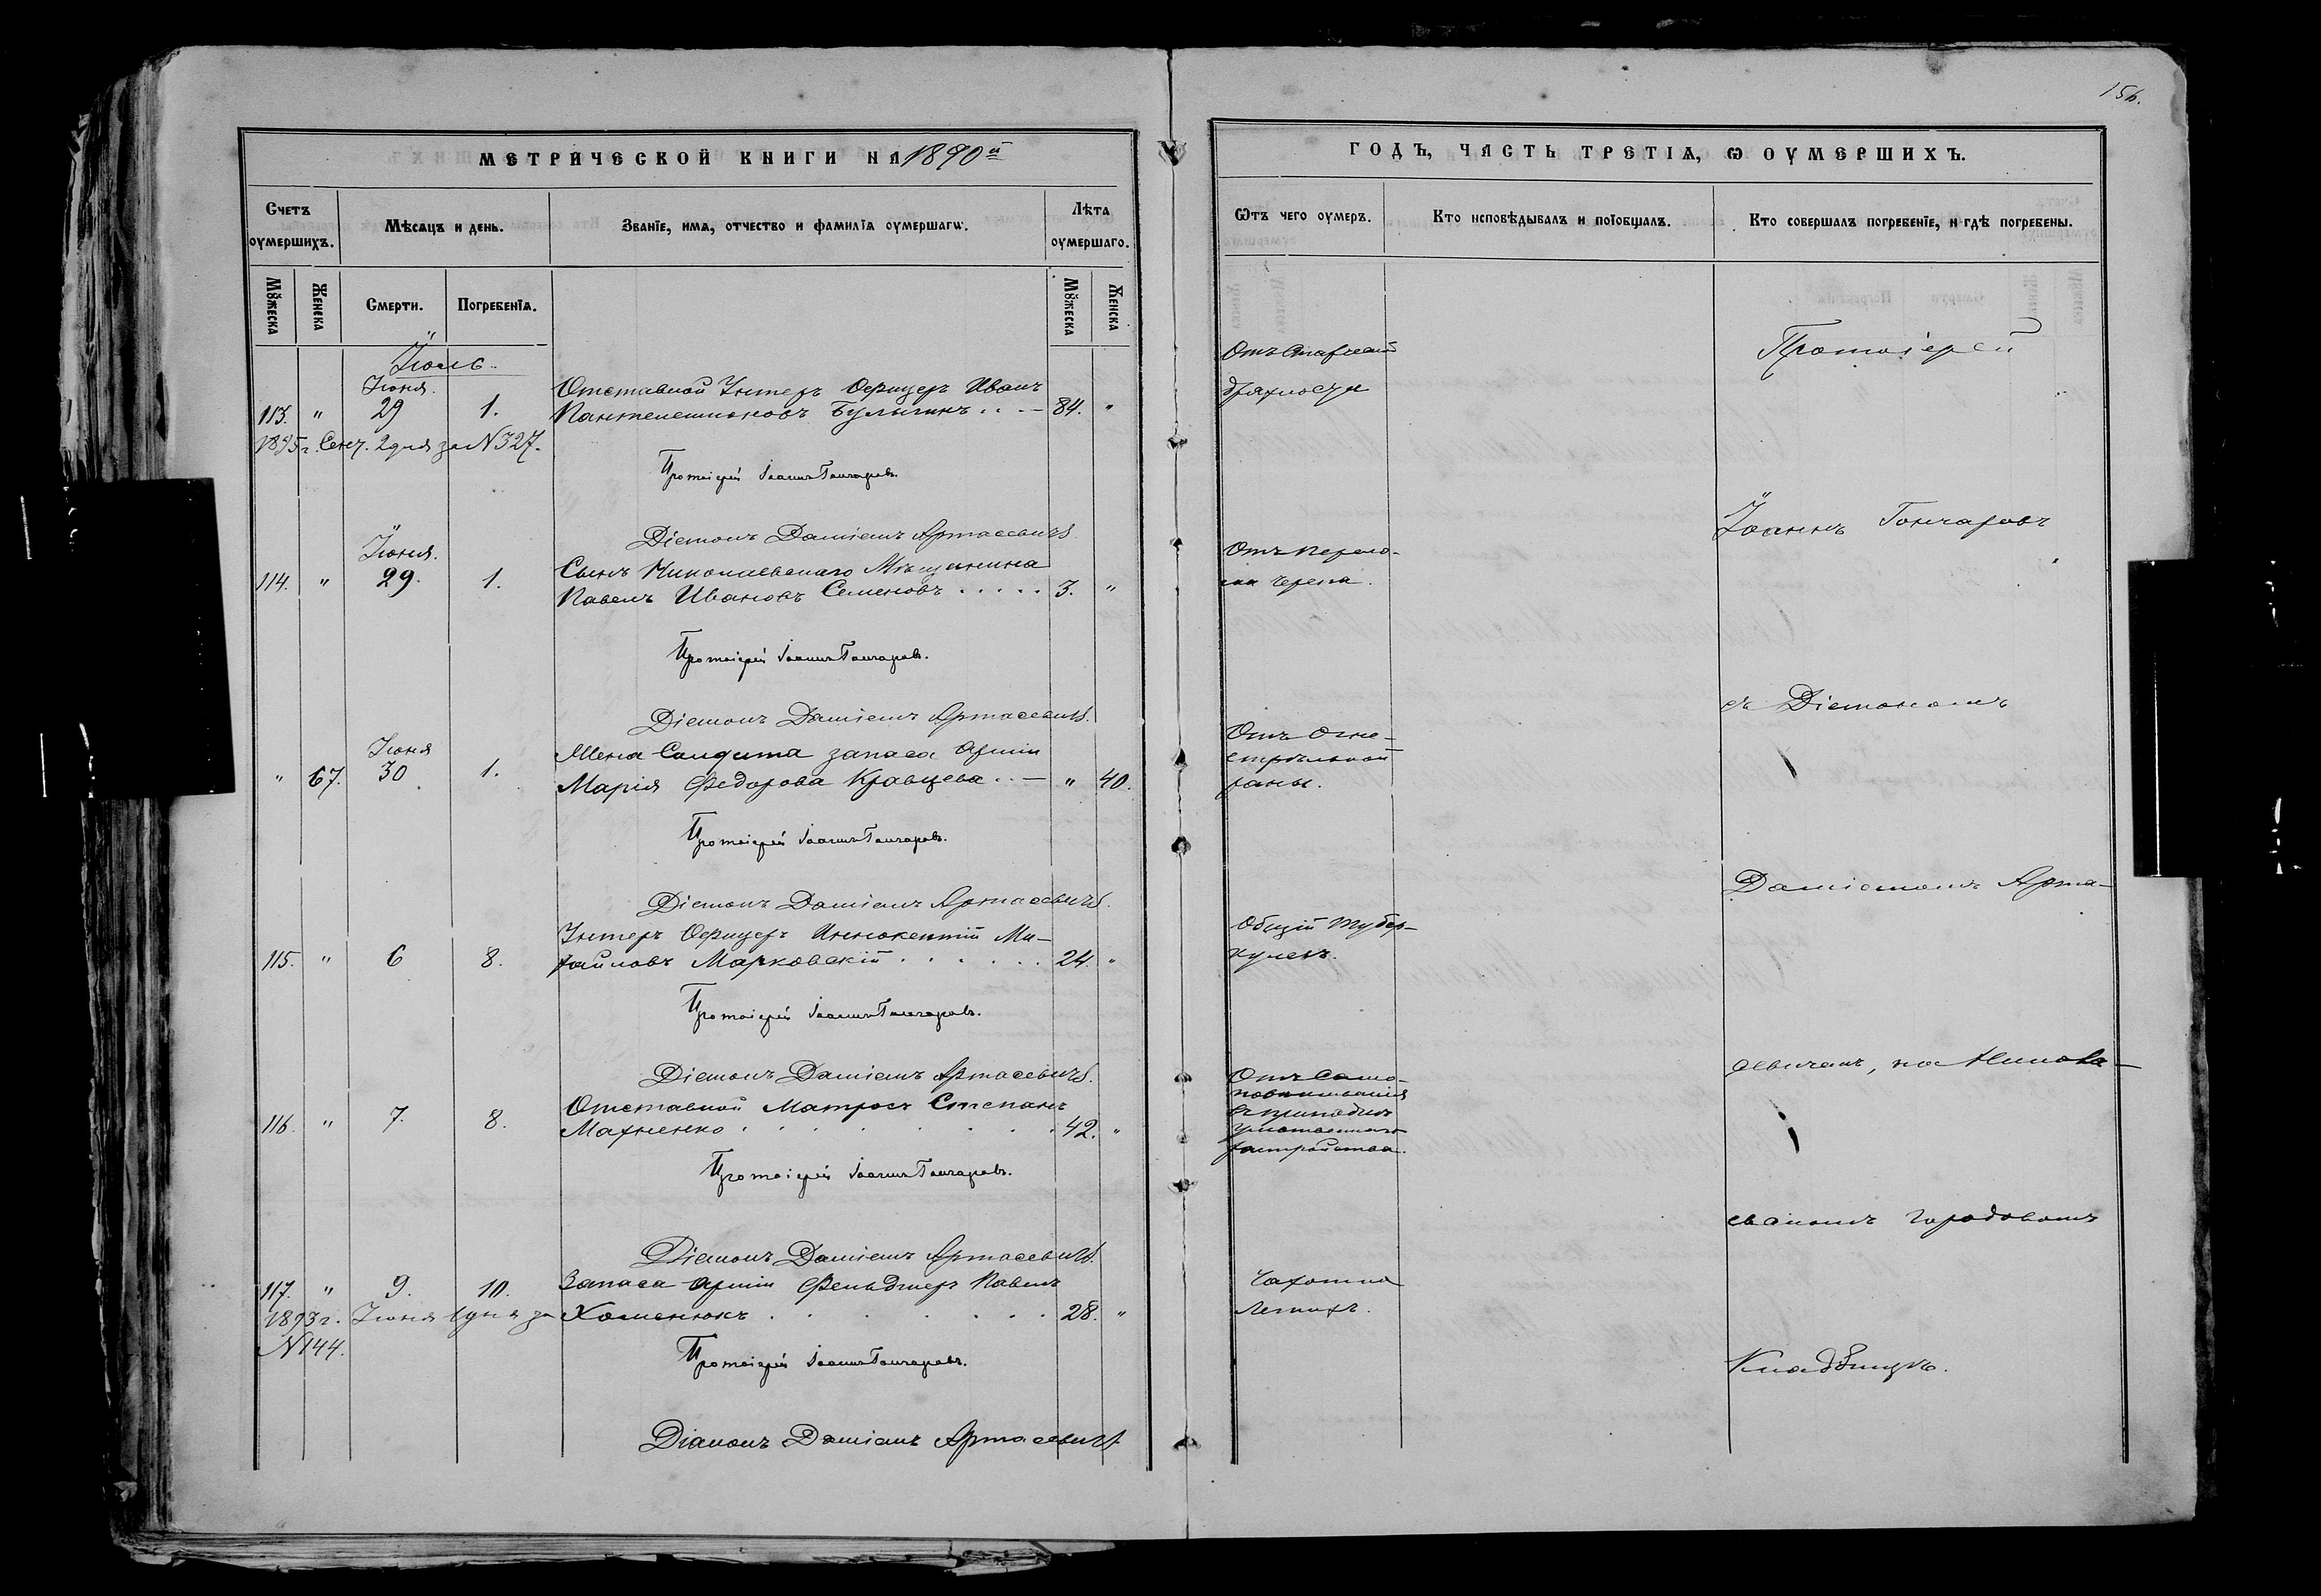 156.
МЕТРИЧЕСКОЙ КНИГИ НА 1890й
Счетъ оумершихъ.
Мѣсяцъ и день.
Званїе, имѧ, отчество и фамилїѧ оумершагѡ.
Лѣта оумершаго.
Мꙋжеска
Женска
Смерти.
Погребенїѧ.
Мꙋжеска
Женска
Іюль.
Іюня.
113. " 29 1. Отставной Унтеръ Офицеръ Иванъ
Пантелеимоновъ Булыгинъ . . — 84. "
1895 г. Сент. 2 дня за N 327.
Протоіерей Іоаннъ Гончаровъ.
Діаконъ Даміанъ Артасевичъ.
Іюня.
114. " 29. 1. Сынъ Николаевскаго Мѣщанина
Павелъ Ивановъ Семеновъ . . . . . 3. "
Протоіерей Іоаннъ Гончаровъ.
Діаконъ Даміанъ Артасевичъ.
Іюня
" 67. 30. 1. Жена Солдата запаса Арміи
Марія Федорова Кравцева . . — " 40.
Протоіерей Іоаннъ Гончаровъ.
Діаконъ Даміанъ Артасевичъ.
Унтеръ Офицеръ Иннокентій Ми-
115. " 6 8. хайловъ Марковскій . . . . . . 24. "
Протоіерей Іоаннъ Гончаровъ.
Діаконъ Даміанъ Артасевичъ.
Отставной Матросъ Степанъ
116. " 7. 8. Махненко . . . . . . . 42. "
Протоіерей Іоаннъ Гончаровъ.
Діаконъ Даміанъ Артасевичъ.
117. " 9. 10. Запаса Арміи Фельдшеръ Павелъ
1893 г. Іюня 1 дня за Хоменюкъ . . . . . . . 28. "
N 144.
Протоіерей Іоаннъ Гончаровъ.
Діаконъ Даміанъ Артасевичъ.
ГОДЪ, ЧАСТЬ ТРЕТІѦ, Ѡ ОУМЕРШИХЪ.
Ѿтъ чего оумеръ.
Кто исповѣдывалъ и пріобщалъ.
Кто совершалъ погребенїе, и гдѣ погребены.
Отъ старческой
дряхлости
Отъ перело-
ма черепа.
Отъ огне-
стрѣльной
раны.
Общій тубер-
кулезъ.
Отъ само-
повѣшиванія
въ припадкѣ
умственнаго
разстройства.
Чахотка
легкихъ.
Протоіерей
Іоаннъ Гончаровъ
съ Діакономъ
Даміаномъ Арта-
севичемъ, на Никола-
евскомъ городовомъ
Кладбищѣ.